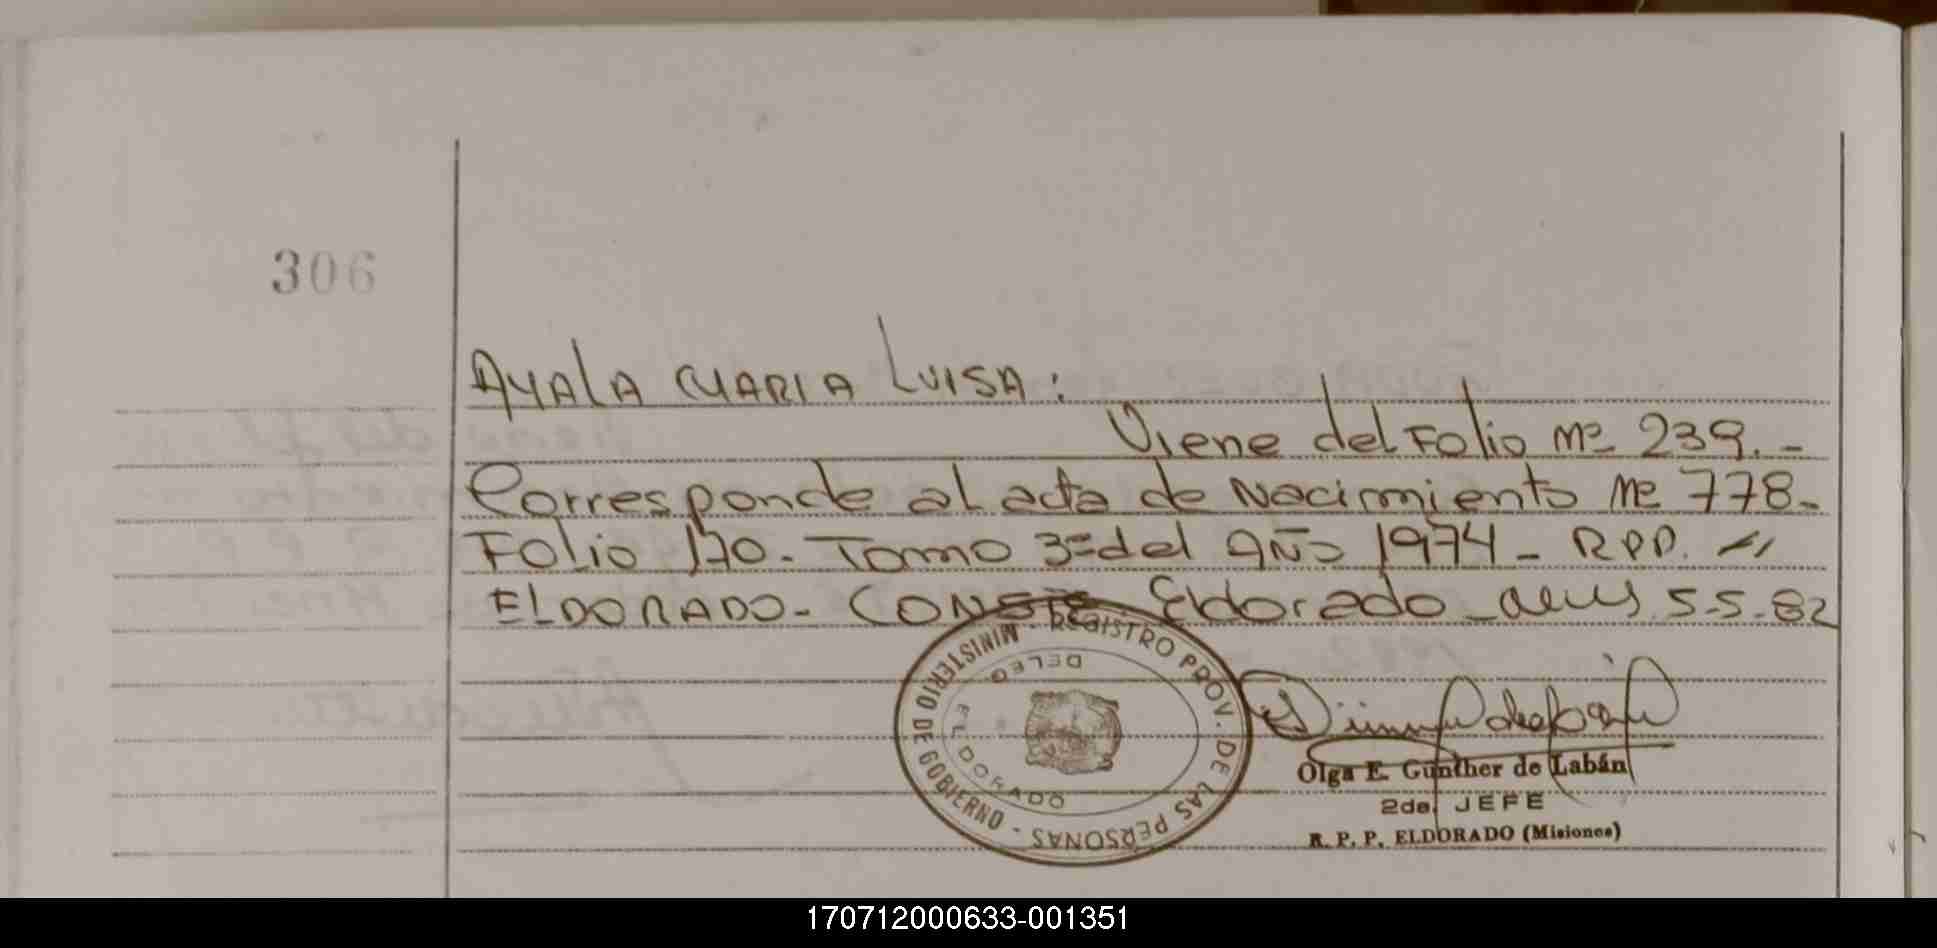 306
AYALA MARIA LUISA:
Viene del Folio Nº 239.-
Corresponde al acta de Nacimiento Nº 778-
Folio 170- Tomo 3º del AÑO 1974 - R.P.P.
ELDORADO- CONSTE Eldorado 5-5-82
MINISTERIO DE GOBIERNO - REGISTRO PROV. DE LAS PERSONAS -
DELEG
ELDORADO
Olga E. Gunther de Labán
2da. JEFE
R. P. P. ELDORADO (Misiones)
170712000633-001351